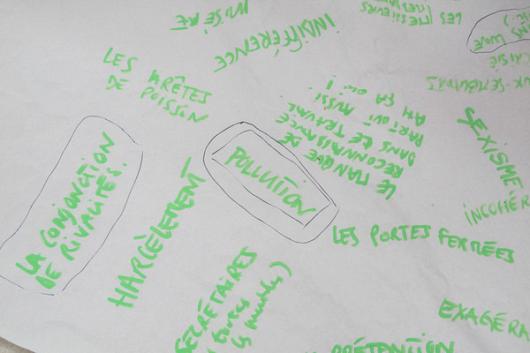 MISÈRE
INDIFFÉRENCE
LES MESSIEURS
LES ARÊTES
DE POISSON
LE MANQUE DE
RECONNAISSANCE
DANS LE TRAVAIL
PART OUI AUSSI.
AH ÇA OUI !
SEXISME
POLLUTION
LA CONJONCTION
DE RIVALITÉS.
HARCÈLEMENT
INCOHÉR
LES PORTES FERMÉES
SECRÉTAIRES
toutes
EXAGÉRA
PRÉTENTION